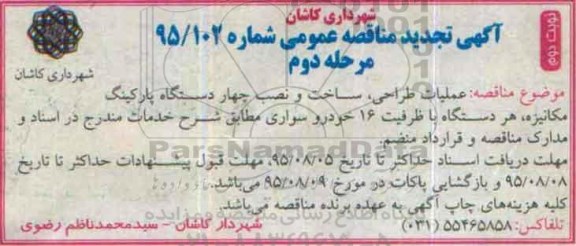 شهرداری کاشان
نوبت دوم
آگهی تجدید مناقصه عمومی شماره ۹۵/۱۰۲
مرحله دوم
شهرداری کاشان
موضوع مناقصه: عملیات طراحی، ساخت و نصب چهار دستگاه پارکینگ
مکانیزه، هر دستگاه با ظرفیت ۱۶ خودرو سواری مطابق شرح خدمات مندرج در اسناد و
مدارک مناقصه و قرارداد منضم.
مهلت دریافت اسناد حداکثر تا تاریخ ۹۵/۰۸/۰۵، مهلت قبول پیشنهادات حداکثر تا تاریخ
۹۵/۰۸/۰۸ و بازگشایی پاکات در مورخ ۹۵/۰۸/۰۹ می‌باشد.
کلیه هزینه‌های چاپ آگهی به عهده برنده مناقصه می‌باشد.
تلفاکس: ۵۵۴۶۵۸۵۸ (۰۳۱) شهردار کاشان - سیدمحمدناظم رضوی